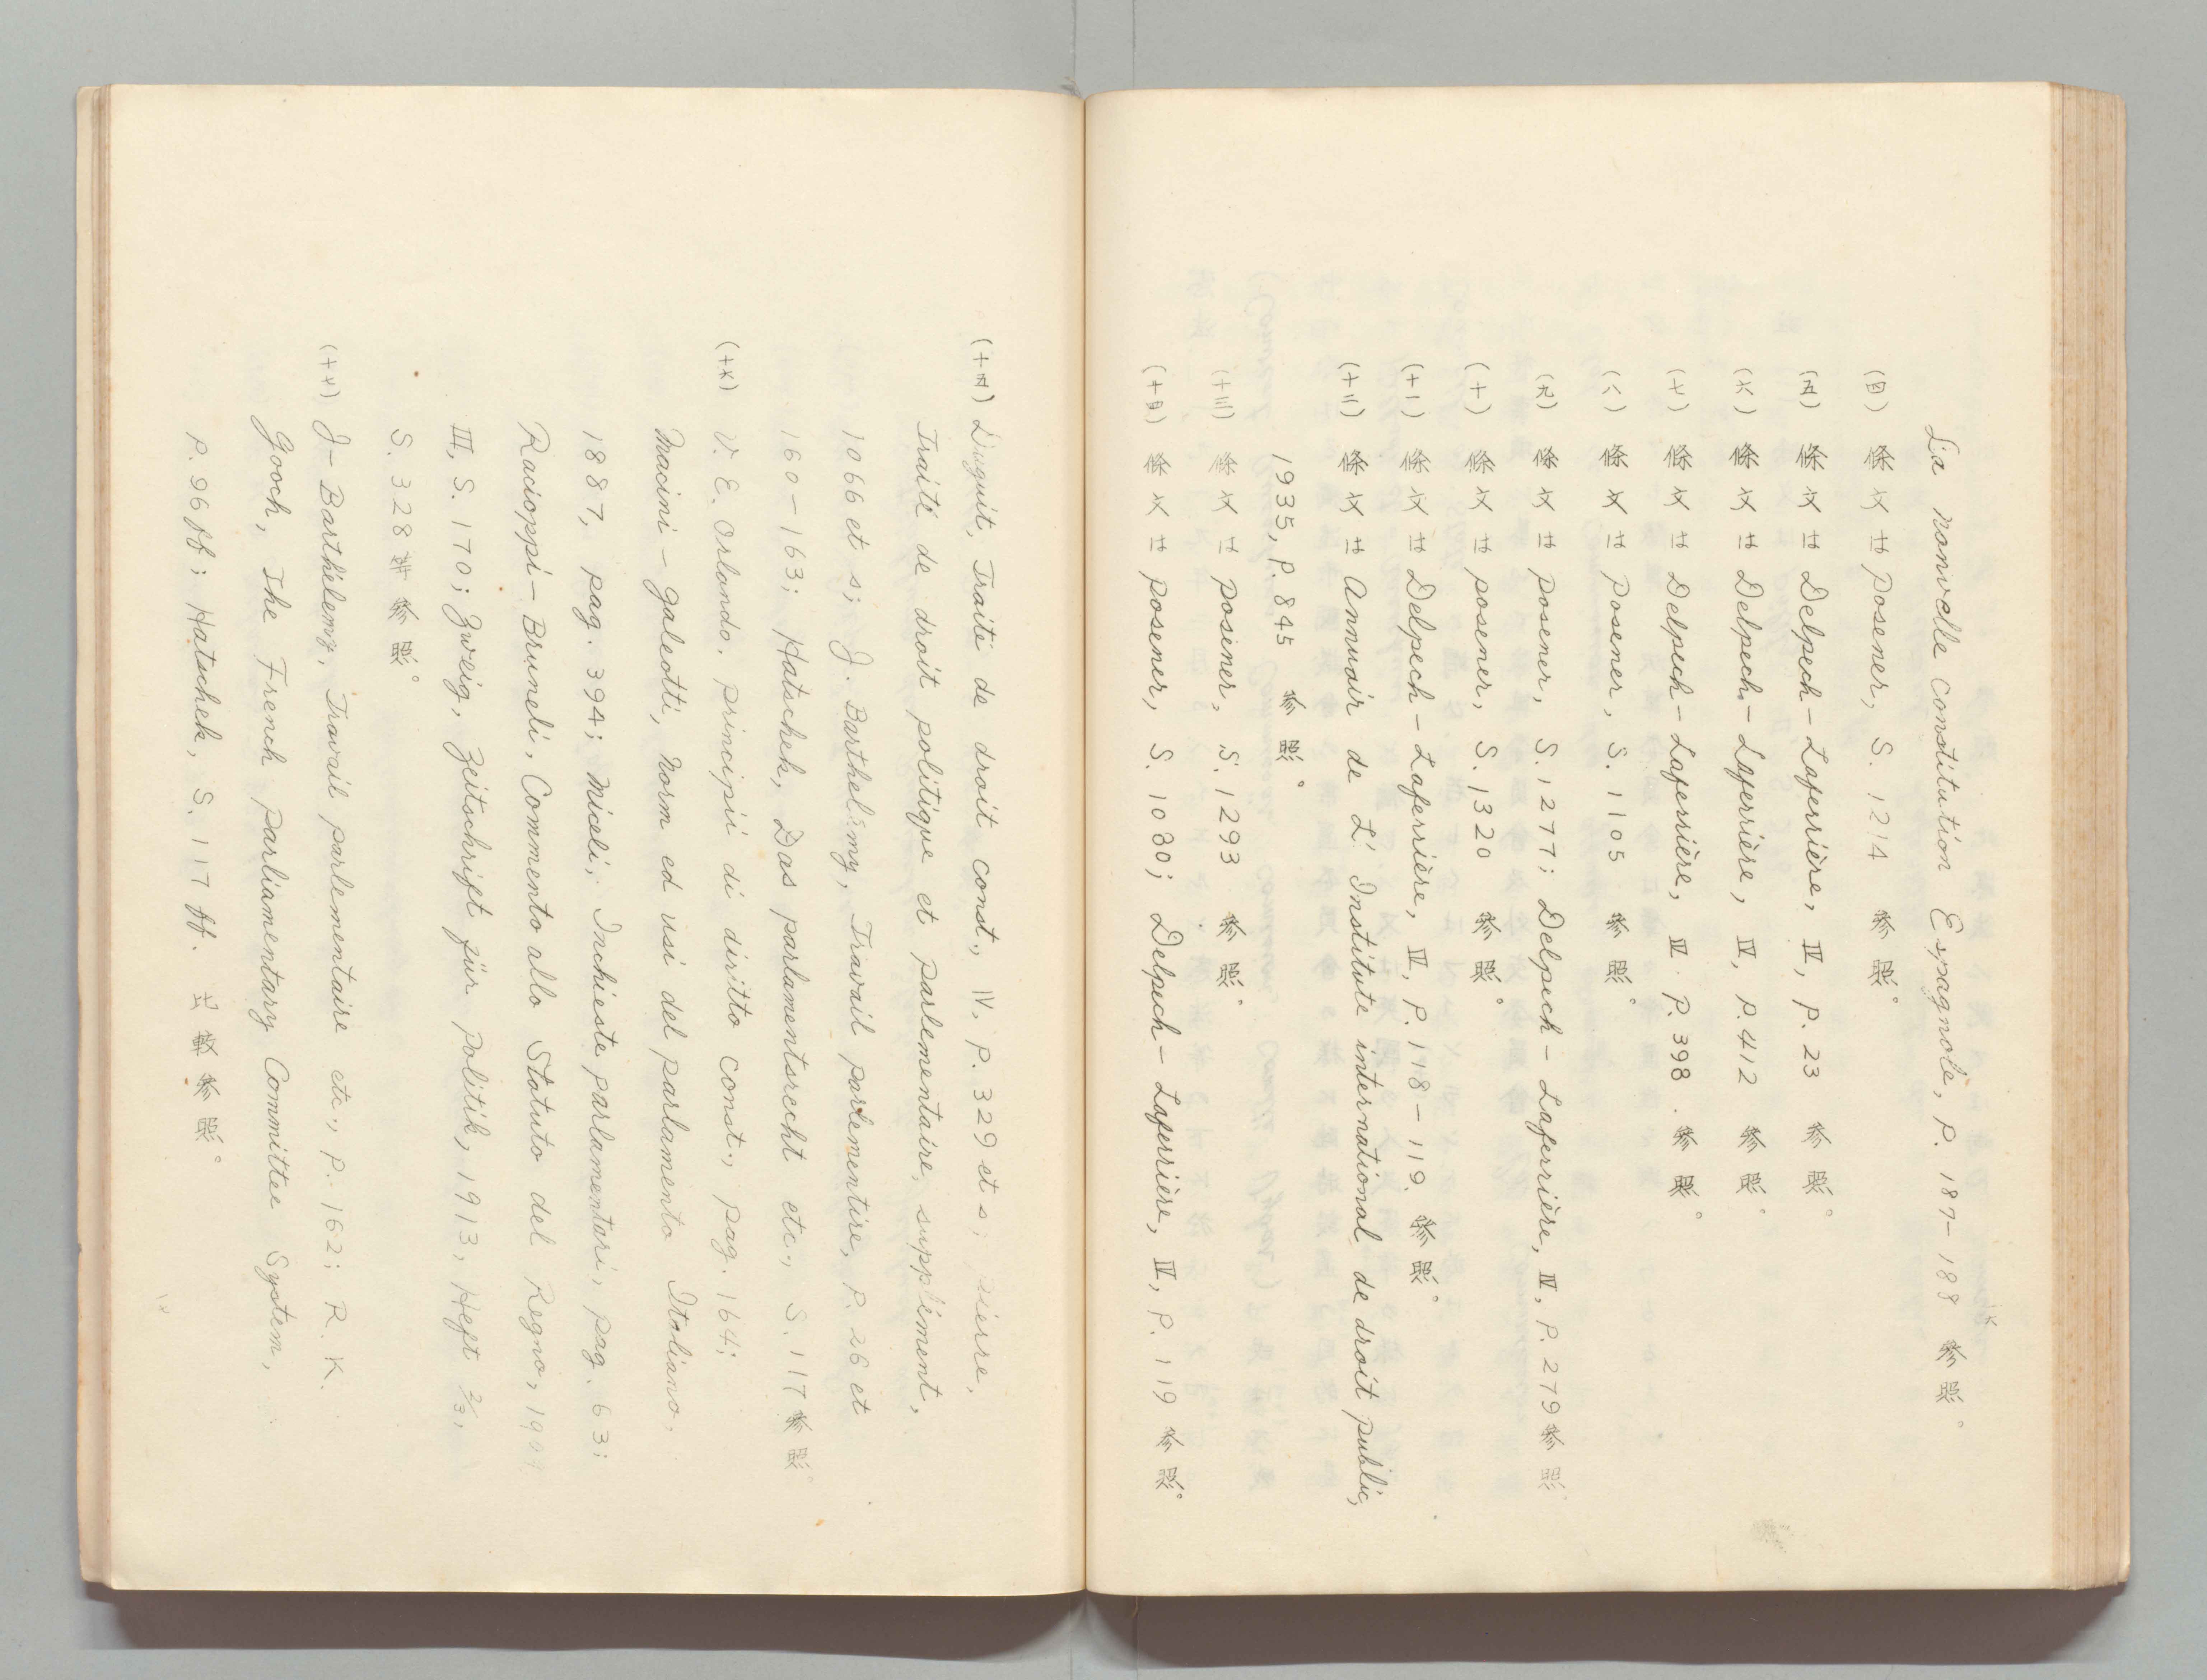 La nouvelle constitution Espagnole, P. 187-188 参照。
(四) 條文は Posener, S. 1214 参照。
(五) 條文は Delpech-Laferrière, Ⅳ, P. 23 参照。
(六) 條文は Delpech-Laferrière, Ⅳ, P. 412 参照。
(七) 條文は Delpech-Laferrière, Ⅳ P. 398. 参照。
(八) 條文は Posener, S. 1105 参照。
(九) 條文は Posener, S. 1277; Delpech-Laferrière, Ⅳ, P. 279 参照
(十) 條文は Posener, S. 1320 参照。
(十一) 條文は Delpech-Laferrière, Ⅳ, P. 118-119. 参照。
(十二) 條文は Annuair de L' Institute international de droit public,
1935, P. 845 参照。
(十三) 條文は Posener, S. 1293 参照。
(十四) 條文は Posener, S. 1080; Delpech-Laferrière, Ⅳ, P. 119 参照。
(十五) Duguit, Traité de droit const., Ⅳ, P. 329 et s;
Traité de droit politique et parlementaire, supplément,
1066 et s; J. Barthélemy, Travail parlementire, P. 26 et
160-163; Hatschek, Das parlamentsrecht etc., S. 117 参照。
(十六) V. E. Orlando, principii di diritto const., pag. 164;
Macini-galeotti, Norm ed usi del parlamento Italiano,
1887, pag. 394; Miceli, Inchieste parlamentari, pag. 63;
Racioppi-Bruneli, Commento allo Statuto del Regno,
Ⅲ, S. 170; Zweig, Zeitschrift für Politik, 1913, Heft 2/3,
S. 328 等参照。
(十七) J-Barthélemy, Travail parlementaire etc., P. 162; R. K.
Gooch, The French parliamentary Committee System,
P. 96 ff; Hatschek, S. 117 ff. 比較参照。